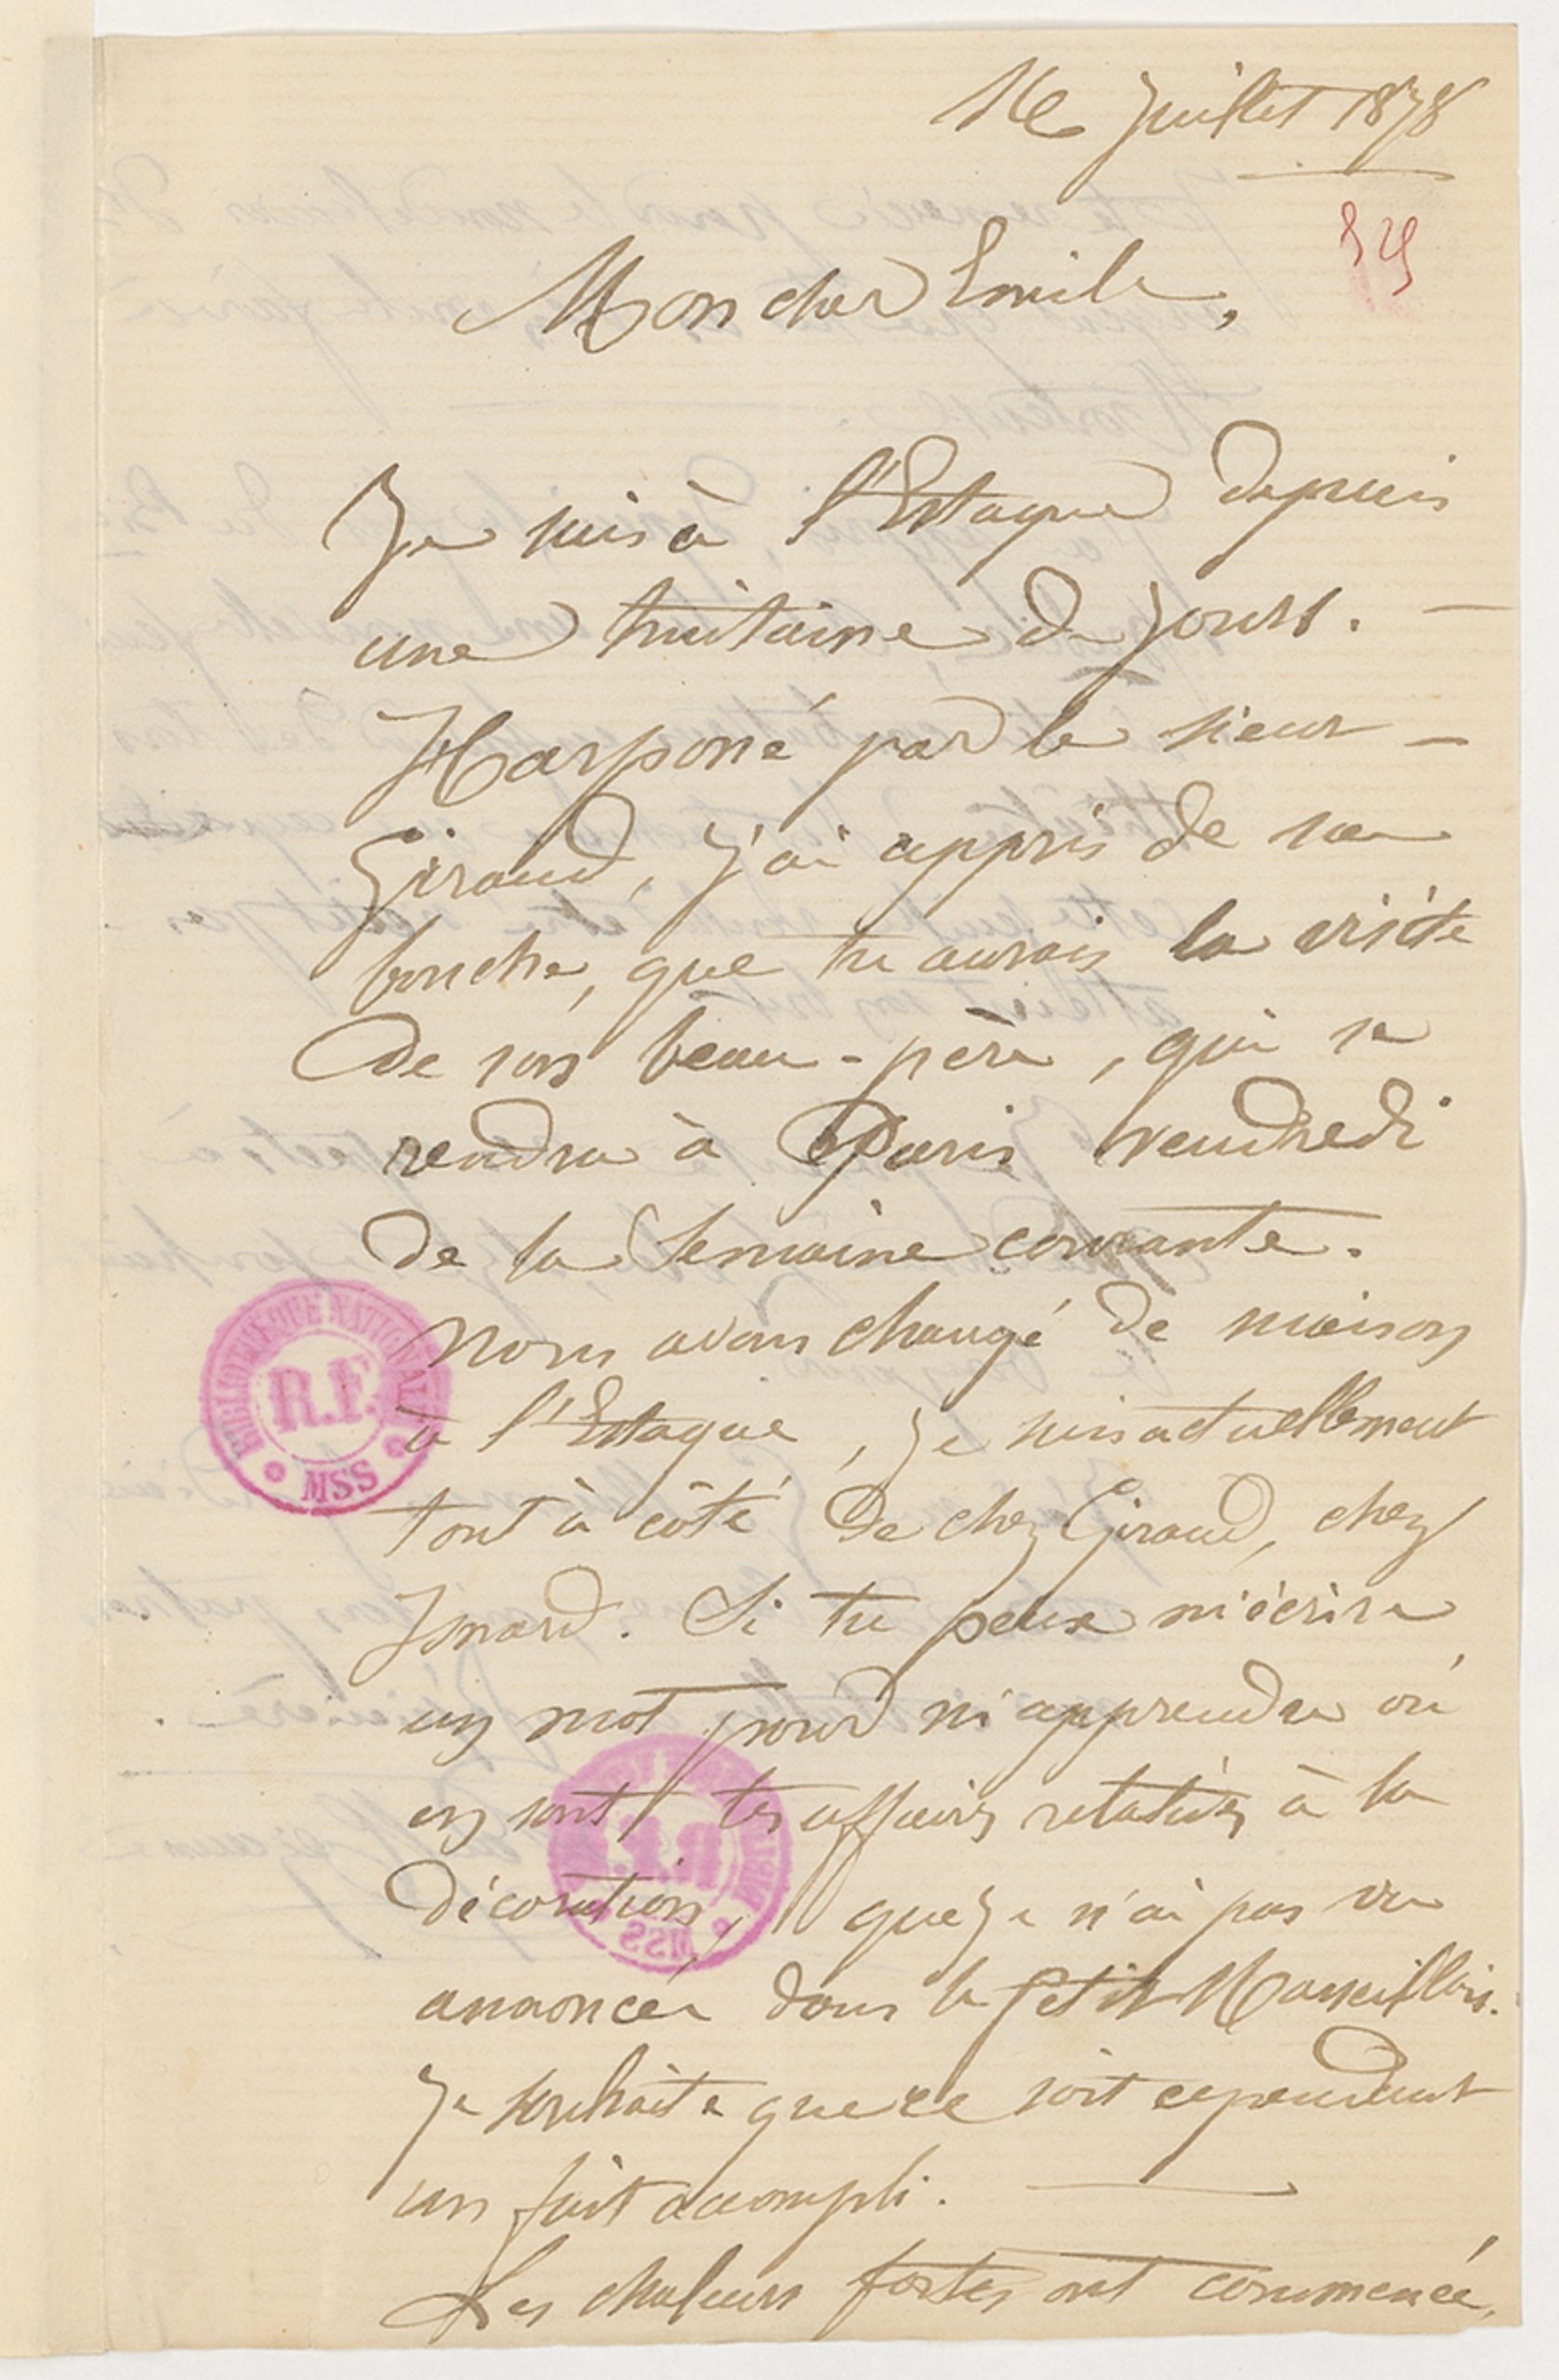 16 Juillet 1878
325
Mon cher Emile,
Je suis à l'Estaque depuis
une huitaine de jours. —
Harponé par le sieur —
Giraud, j'ai appris de sa
bouche, que tu aurais la visite
de son beau-père, qui se
rendra à Paris vendredi
de la semaine courante.
Nous avons changé de maison
à l'Estaque, je suis actuellement
tout à côté de chez Giraud, chez
Isnard. Si tu peux m'écrire
un mot pour m'apprendre où
en sont tes affaires relatives à la
décoration, que je n'ai pas vu
annoncée dans le Petit Marseillais.
Je souhaite que ce soit cependant
un fait accompli. —
Les chaleurs fortes ont commencé,
BIBLIOTHEQUE NATIONALE
R.F.
MSS
R.F.
MSS